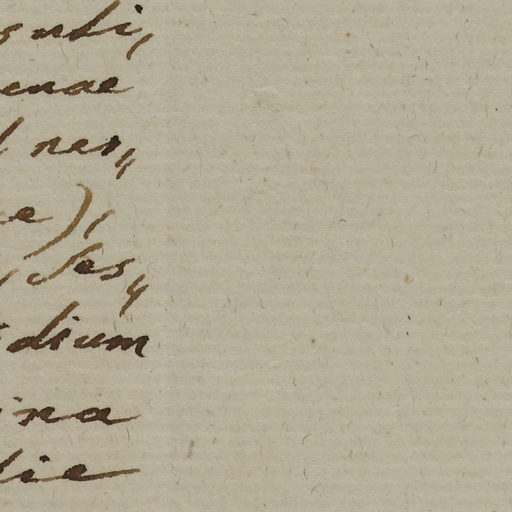 nti,
enae
nes„
e),
Ses„
dium
ina
lie